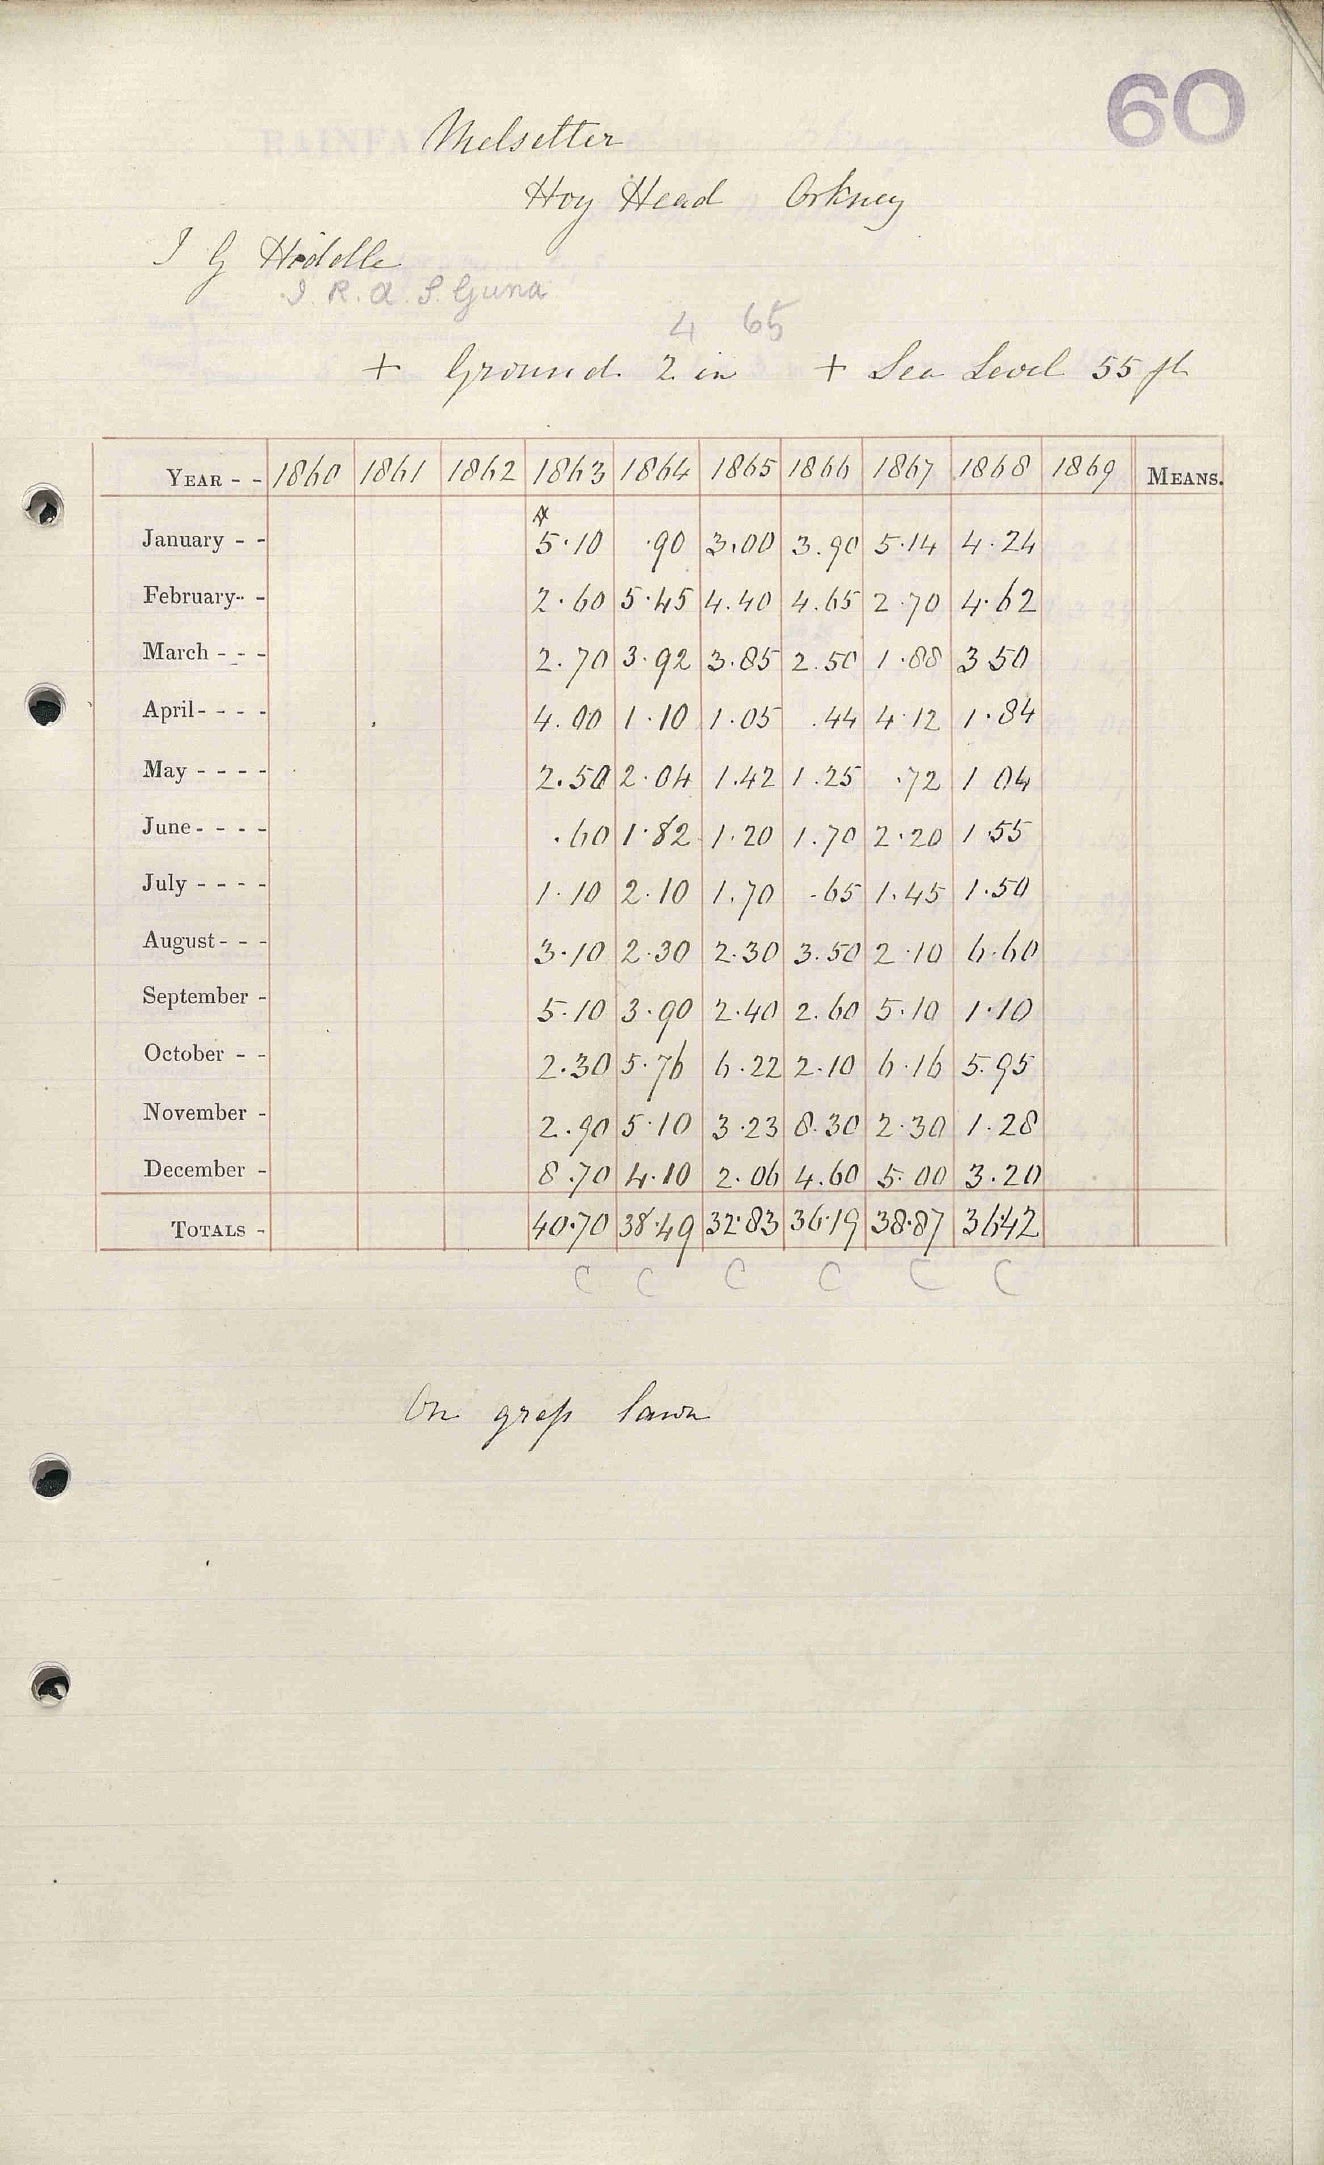 60
Melsetter
Hoy Head Orkney
J G Heddle
4 65
+ Ground 2 in + Sea Level 55 ft
YEAR - - 1860 1861 1862 1863 1864 1865 1866 1867 1868 1869 MEANS.
January - - 5.10 .90 3.00 3.90 5.14 4.24
February - - 2.60 5.45 4.40 4.65 2.70 4.62
March - - - 2.70 3.92 3.85 2.50 1.88 3 50
April - - - - 4.00 1.10 1.05 .44 4.12 1.84
May - - - - 2.50 2.04 1.42 1.25 .72 1 04
June - - - - .60 1.82 1.20 1.70 2.20 1.55
July - - - - 1.10 2.10 1.70 .65 1.45 1.50
August - - - 3.10 2.30 2.30 3.50 2.10 6.60
September - 5.10 3.90 2.40 2.60 5.10 1.10
October - - 2.30 5.76 6.22 2.10 6.16 5.95
November - 2.90 5.10 3.23 8.30 2.30 1.28
December - 8.70 4.10 2.06 4.60 5.00 3.20
TOTALS - 40.70 38.49 32.83 36.19 38.87 36.42
C C C C C C
On grass lawn